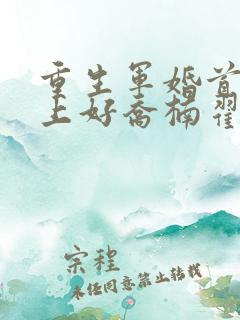 重生军婚首
上好乔楠翟
宗程
未经同意禁止转载